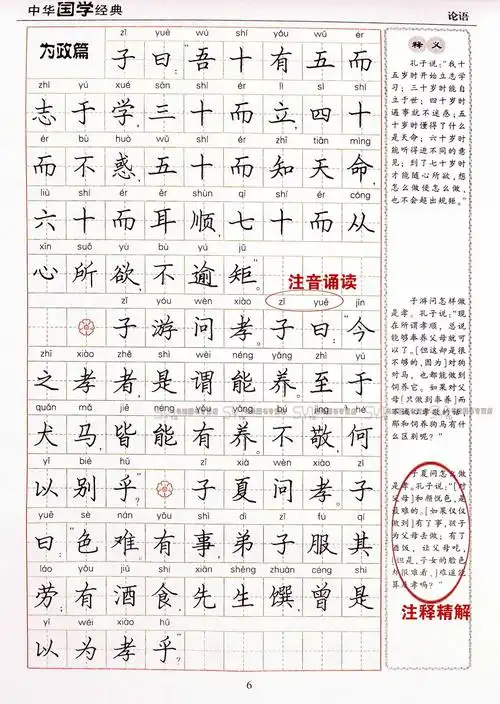 中华国学经典
论语
为政篇
zǐ yuē wú shí yǒu wǔ ér
子曰:“吾十有五而
zhì yú xué sān shí ér lì sì shí
志于学,三十而立,四十
ér bù huò wǔ shí ér zhī tiān mìng
而不惑,五十而知天命,
liù shí ér ěr shùn qī shí ér cóng
六十而耳顺,七十而从
xīn suǒ yù bù yú jǔ
心所欲,不逾矩。”
注音诵读
zǐ yóu wèn xiào zǐ yuē jīn
子游问孝。子曰:“今
zhī xiào zhě shì wèi néng yǎng zhì yú
之孝者,是谓能养。至于
quǎn mǎ jiē néng yǒu yǎng bù jìng hé
犬马,皆能有养。不敬,何
yǐ bié hū zǐ xià wèn xiào zǐ
以别乎?”子夏问孝。子
yuē sè nán yǒu shì dì zǐ fú qí
曰:“色难。有事,弟子服其
láo yǒu jiǔ shí xiān shēng zhuàn céng shì
劳;有酒食,先生馔,曾是
yǐ wéi xiào hū
以为孝乎?”
释义
孔子说:“我十
五岁时开始立志学
习;三十岁时能自
立于世;四十岁时
遇事就不迷惑;五
十岁时懂得了什么
是天命;六十岁时
能听得进不同的意
见;到了七十岁时
才能随心所欲,想
怎么做便怎么做,
也不会超出规矩。”
子游问怎样做
是孝。孔子说:“现
在所谓孝顺,总说
能够奉养父母就可
以了。[但这却是很
不够的,因为]对狗
对马,也都能做到
饲养它。如果对父
母[只做到奉养]而
不诚心孝敬的话,
那和饲养狗马有什
么区别呢?”
子夏问怎么做
是孝。孔子说:“[对
父母]和颜悦色,是
最难的。[如果仅仅
做到]有了事,孩子
为父母去做;有了
酒饭,让父母吃,
[但是,子女的脸色
却很难看,]难道能
算是孝吗?”
注释精解
6